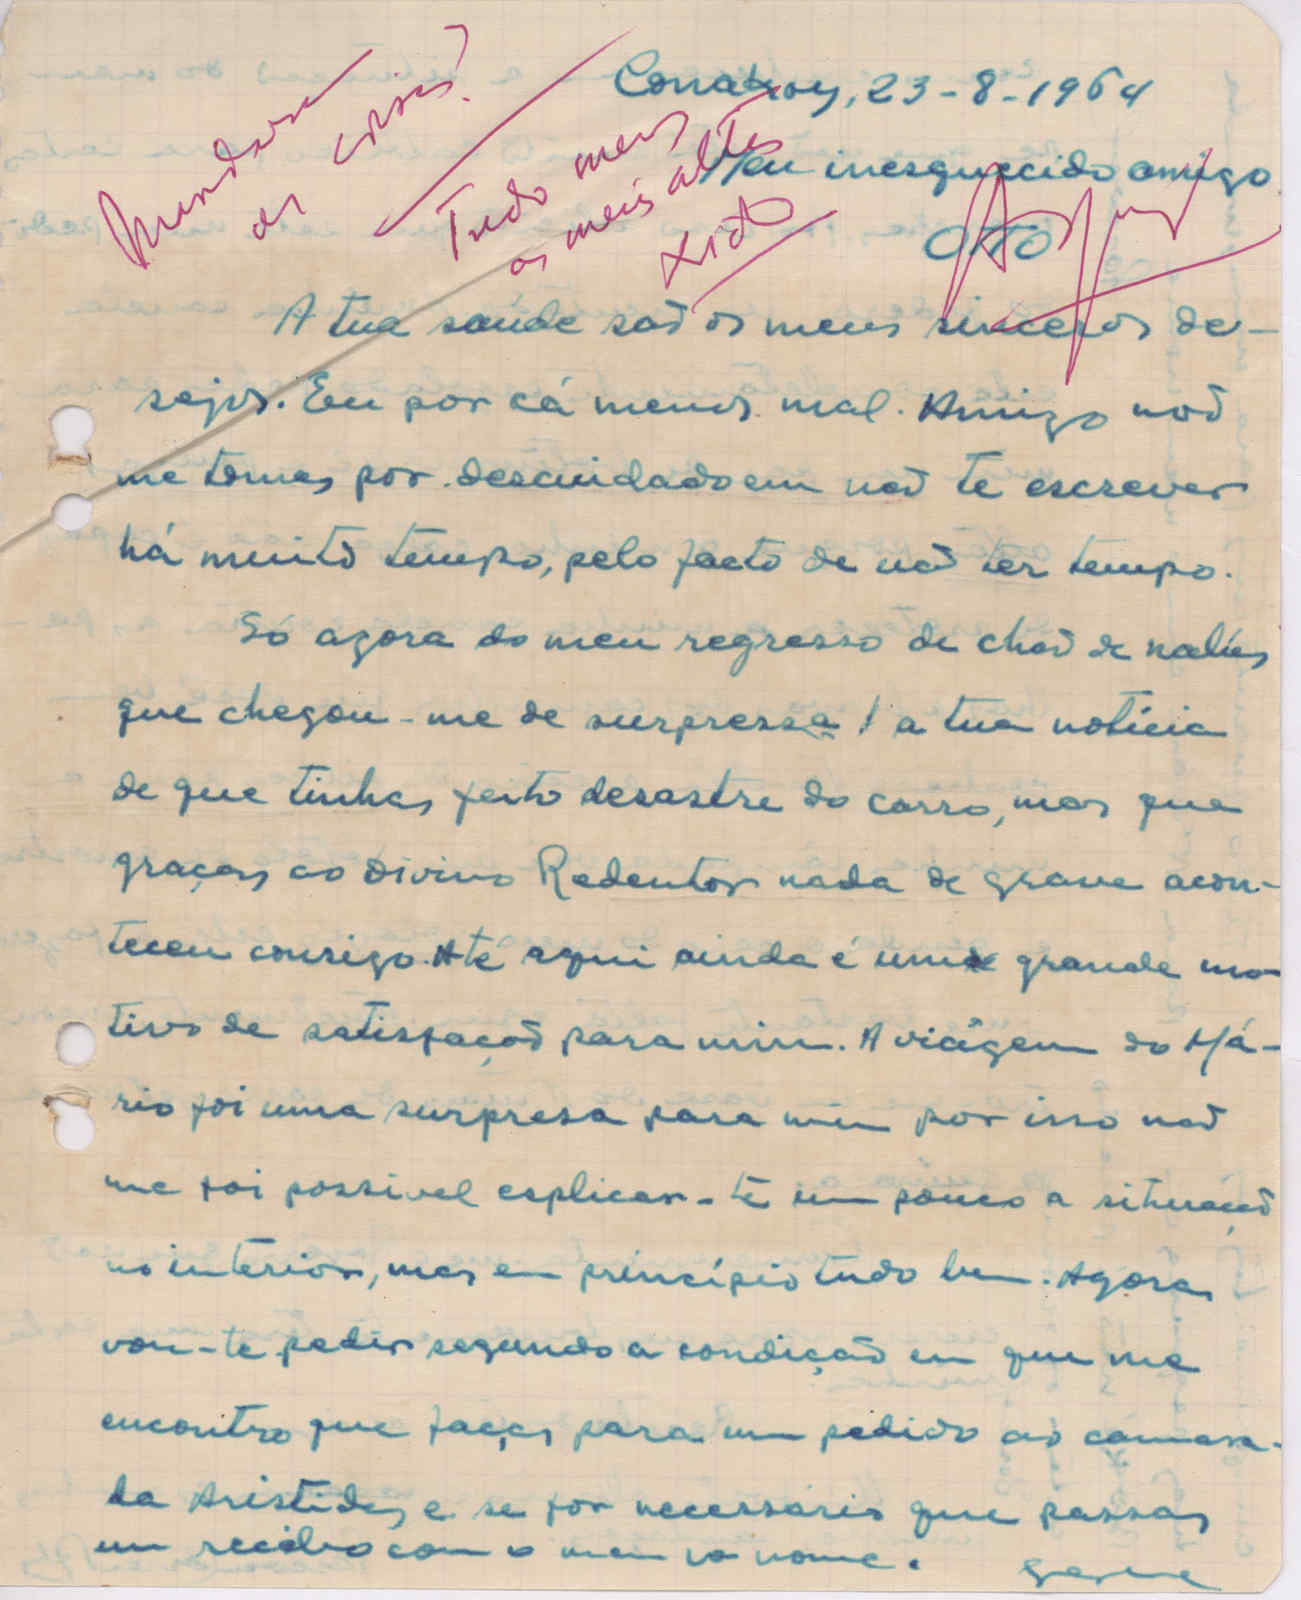 Conakry, 23-8-1964
Meu inesquecido amigo
OTTO
Mandara
as coisas?
Tudo meus
os mais altos
A tua saude são os meus sinceros de-
sejos. Eu por cá menos mal. Amigo não
me tomes por descuidado em não te escrever
há muito tempo, pelo facto de não ter tempo.
Só agora do meu regresso de chão de
que chegou-me de surpressa! a tua notícia
de que tinhas feito desastre do carro, mas que
graças ao divino Redentor nada de grave acon-
teceu consigo. Até aqui ainda é um grande mo-
tivo de satisfação para mim. A viágem do Má-
rio foi uma surpresa para mim por isso não
me foi possivel esplicar-te um pouco a situação
no interior, mas em princípio tudo bem. Agora,
vou-te pedir segundo a condição em que me
encontro que faças para um pedido ao camara-
da Aristides e se for necessário que passas
um recibo com o meu nome.